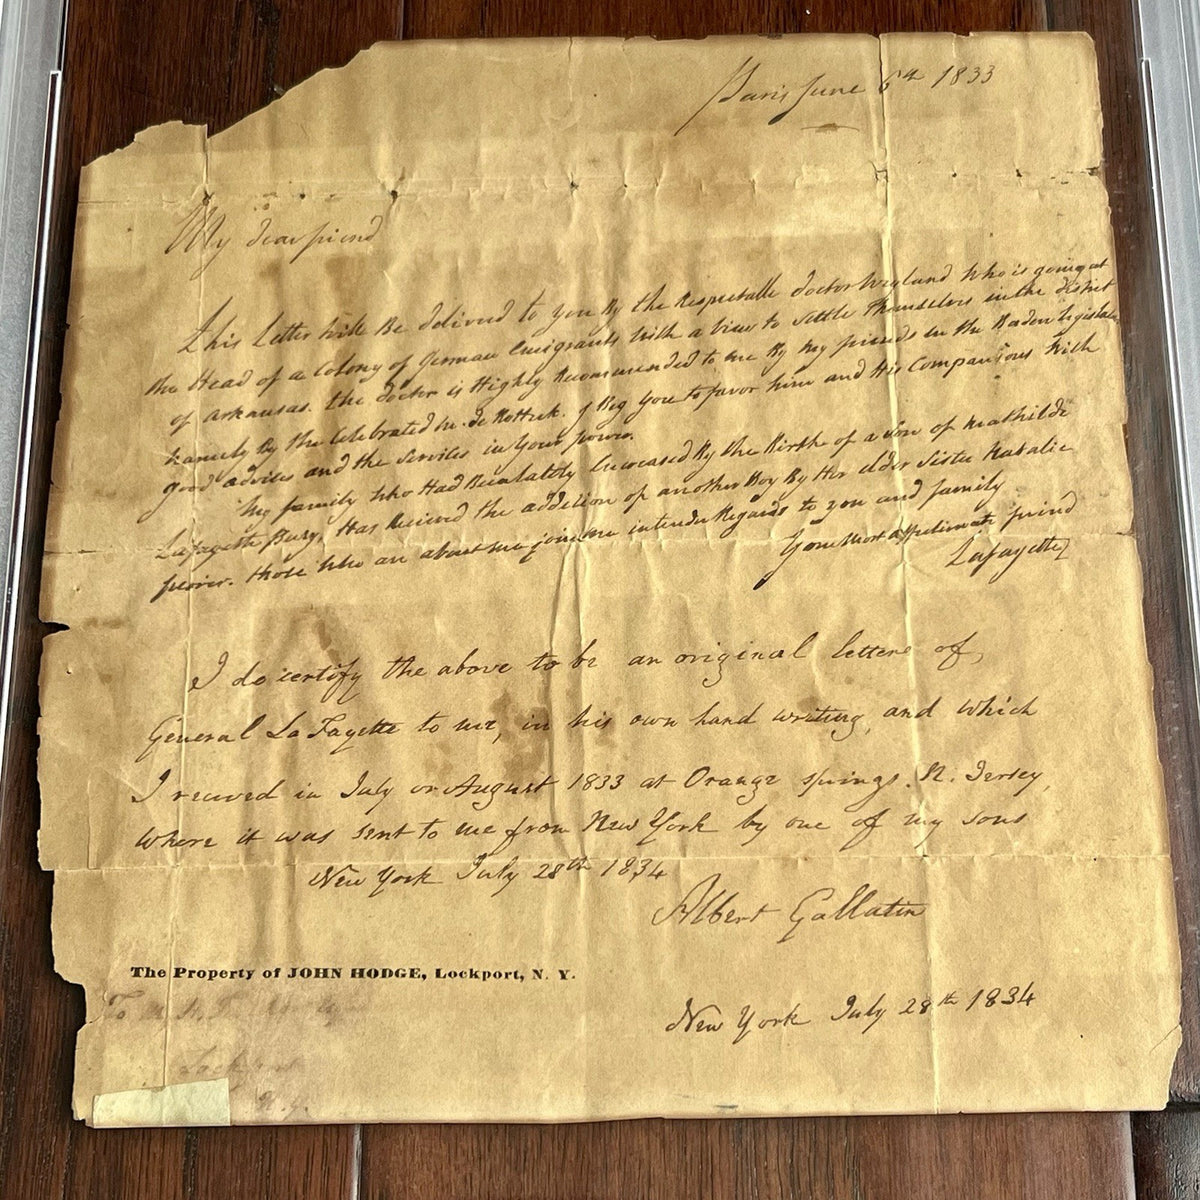 Paris June 6th 1833
My dear friend
This Letter will Be delivered to you By the Respectable doctor Weyland who is going at
the Head of a Colony of German Emigrants with a view to settle Themselves in the district
of Arkansas. the doctor is Highly Recommended to me By my friends in the Baden legislature
namely By the Celebrated M. de Rotteck. I Beg you to favor him and His Companions with
good advices and the services in Your power.
My family who Had Been lately Encreased By the Birth of a son of Mathilde
Lafayette Bury, Has Received the addition of another Boy By Her elder sister Natalie
perier. those who are about me join me in tender Regards to you and family
Your Most affectionate friend
Lafayette
I do certify the above to be an original letter of,
General La Fayette to me, in his own hand writing, and which
I received in July or August 1833 at Orange springs. N. Jersey,
where it was sent to me from New York by one of my sons
New York July 28th 1834
Albert Gallatin
The Property of JOHN HODGE, Lockport, N. Y.
To
New York July 28th 1834
Lockport
N. Y.